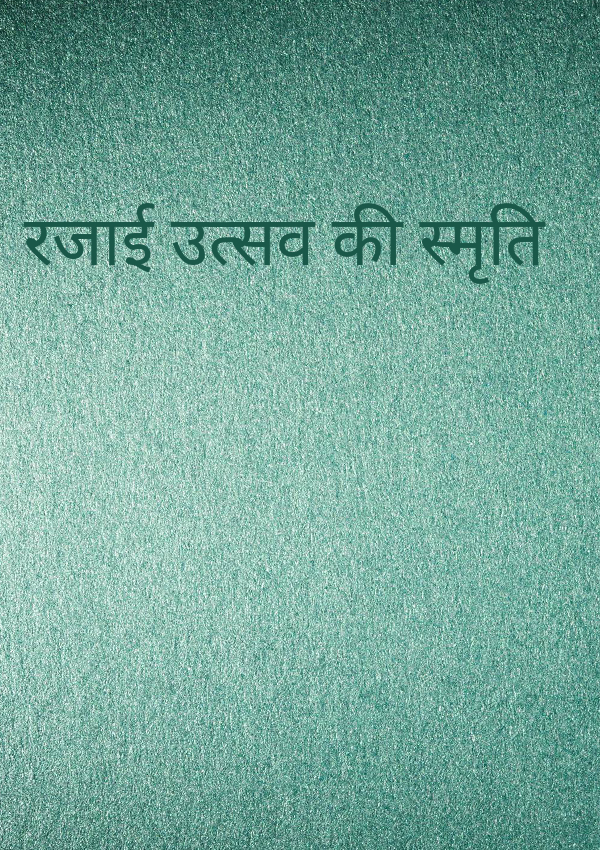 रजाई उत्सव की स्मृति